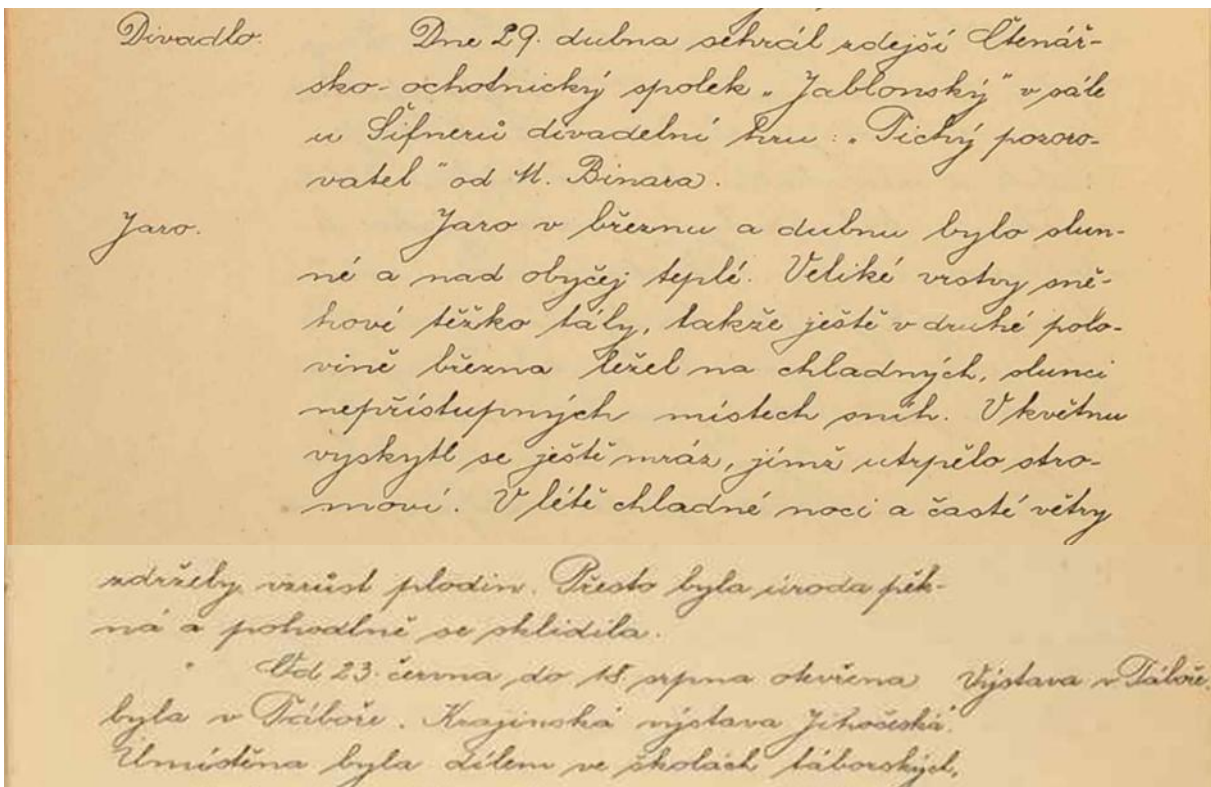 Divadlo. Dne 29. dubna sehrál zdejší Čtenář-
sko-ochotnický spolek „Jablonský" v sále
u Šifnerů divadelní hru: „Tichý pozoro-
vatel" od M. Binara.
Jaro. Jaro v březnu a dubnu bylo slun-
né a nad obyčej teplé. Veliké vrstvy sně-
hové těžko tály, takže ještě v druhé polo-
vině března ležel na chladných, slunci
nepřístupných místech sníh. V květnu
vyskytl se ještě mráz, jímž utrpělo stro-
moví. V létě chladné noci a časté větry
zdržely vzrůst plodin. Přesto byla úroda pěk-
ná a pohodlně se sklidila.
Od 23. června do 18. srpna otevřena Výstava v Táboře.
byla v Táboře. Krajinská výstava Jihočeská.
Umístěna byla dílem ve školách táborských,